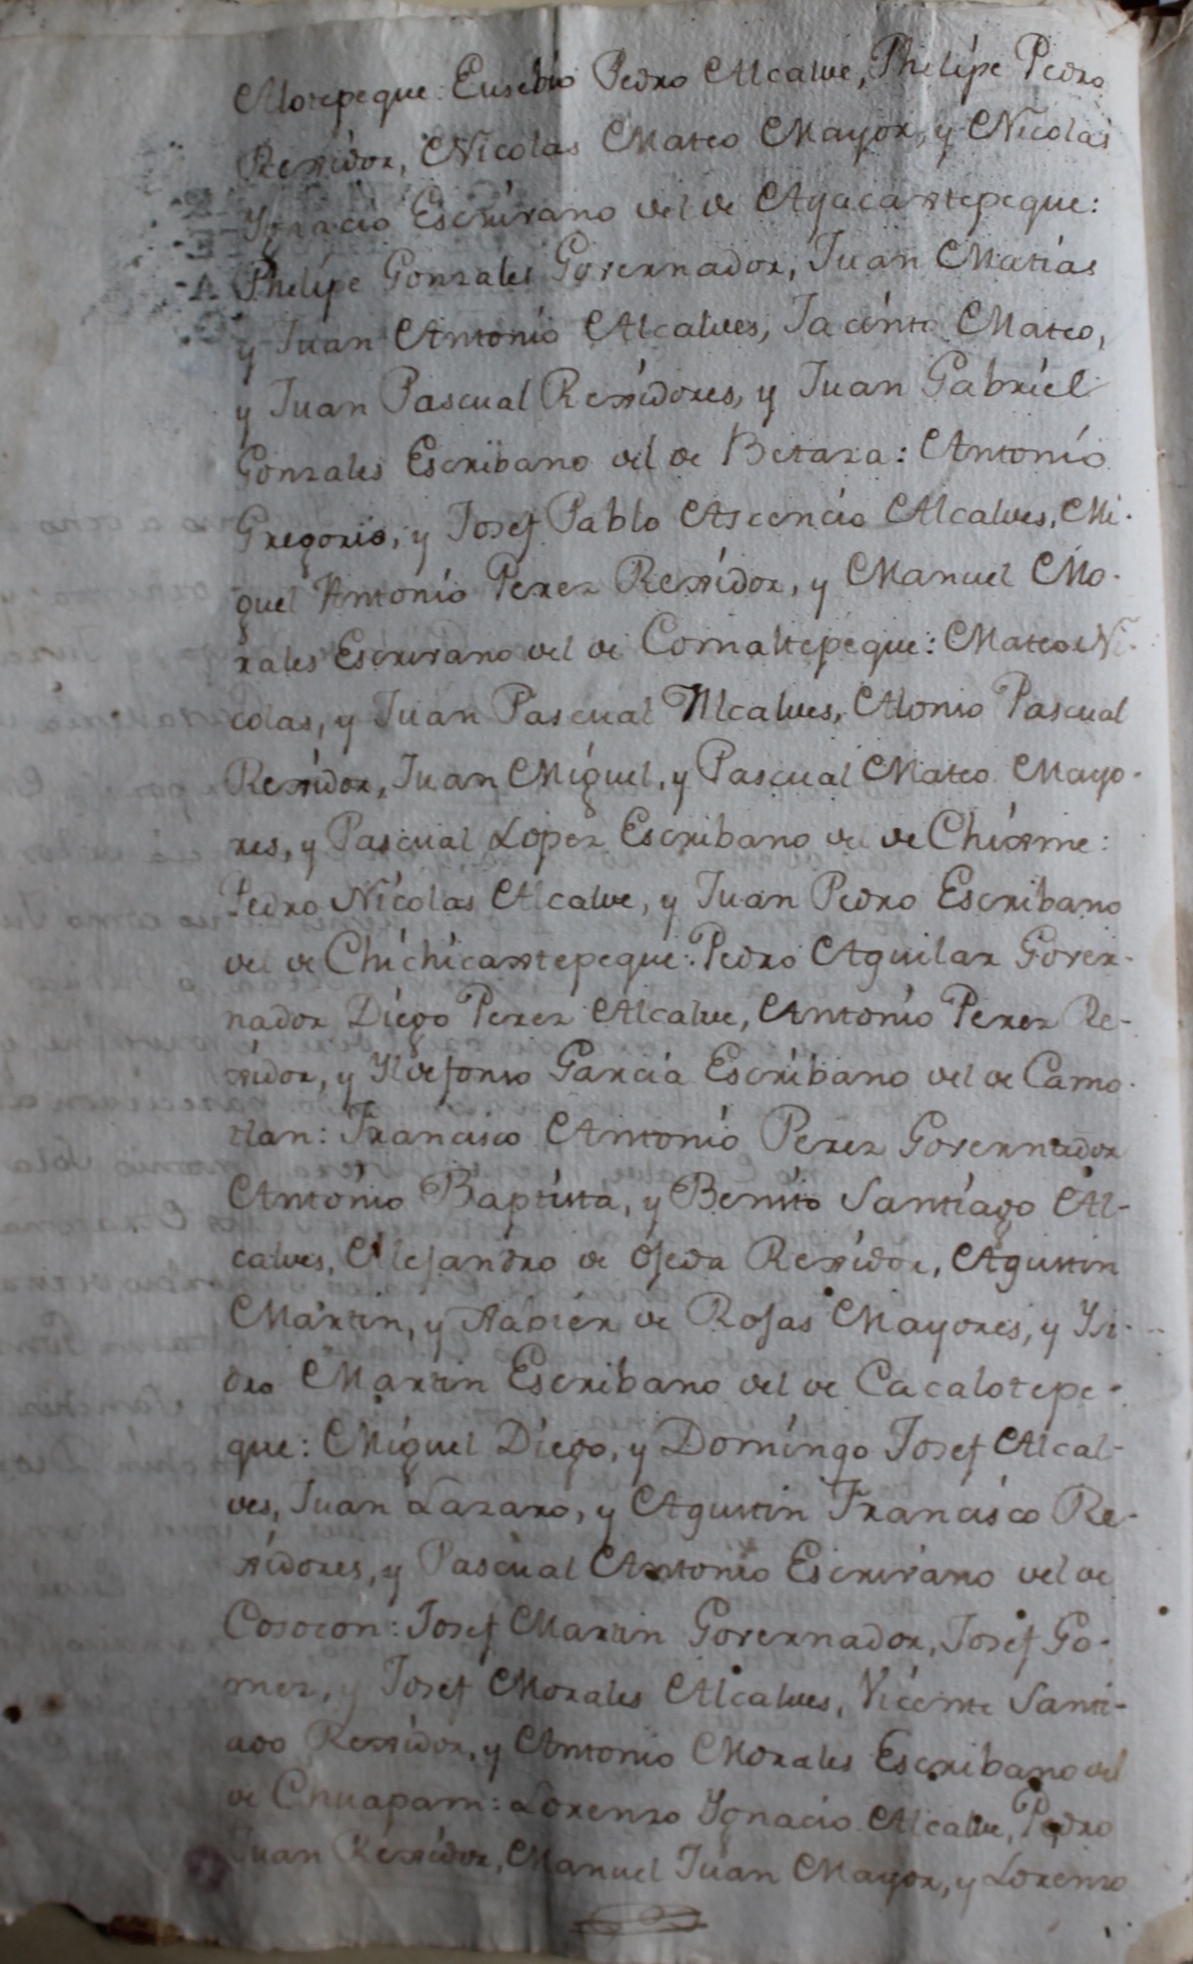 Alotepeque: Eusebio Pedro Alcalde, Phelipe Pedro
Rexidor, Nicolas Mateo Mayor, y Nicolas
Ygnacio Escrivano del de Ayacaxtepeque:
Phelipe Gonzales Governador, Juan Matias
y Juan Antonio Alcaldes, Jacinto Mateo,
y Juan Pascual Rexidores, y Juan Gabriel
Gonzales Escribano del de Betaza: Antonio
Gregorio, y Josef Pablo Ascencio Alcaldes, Mi-
guel Antonio Perez Rexidor, y Manuel Mo-
rales Escrivano del de Comaltepeque: Mateo Ni-
colas, y Juan Pascual Alcaldes, Alonso Pascual
Rexidor, Juan Miguel, y Pascual Mateo Mayo-
res, y Pascual Lopez Escribano del de Chisme:
Pedro Nicolas Alcalde, y Juan Pedro Escribano
del de Chichicaxtepeque: Pedro Aguilar Gover-
nador Diego Perez Alcalde, Antonio Perez Re-
xidor, y Yldefonso Garcia Escribano del de Camo-
tlan: Francisco Antonio Perez Governador
Antonio Baptista, y Benito Santiago Al-
caldes, Alejandro de Ojeda Rexidor, Agustin
Martin, y Xabier de Rojas Mayores, y Ysi-
dro Martin Escribano del de Cacalotepe-
que: Miguel Diego, y Domingo Josef Alcal-
des, Juan Lazaro, y Agustin Francisco Re-
xidores, y Pascual Antonio Escrivano del de
Cosocon: Josef Martin Governador, Josef Go-
mez, y Josef Morales Alcaldes, Vicente Santi-
ago Rexidor, y Antonio Morales Escribano del
de Chuapam: Lorenzo Ygnacio Alcalde, Pedro
Juan Rexidor, Manuel Juan Mayor, y Lorenzo